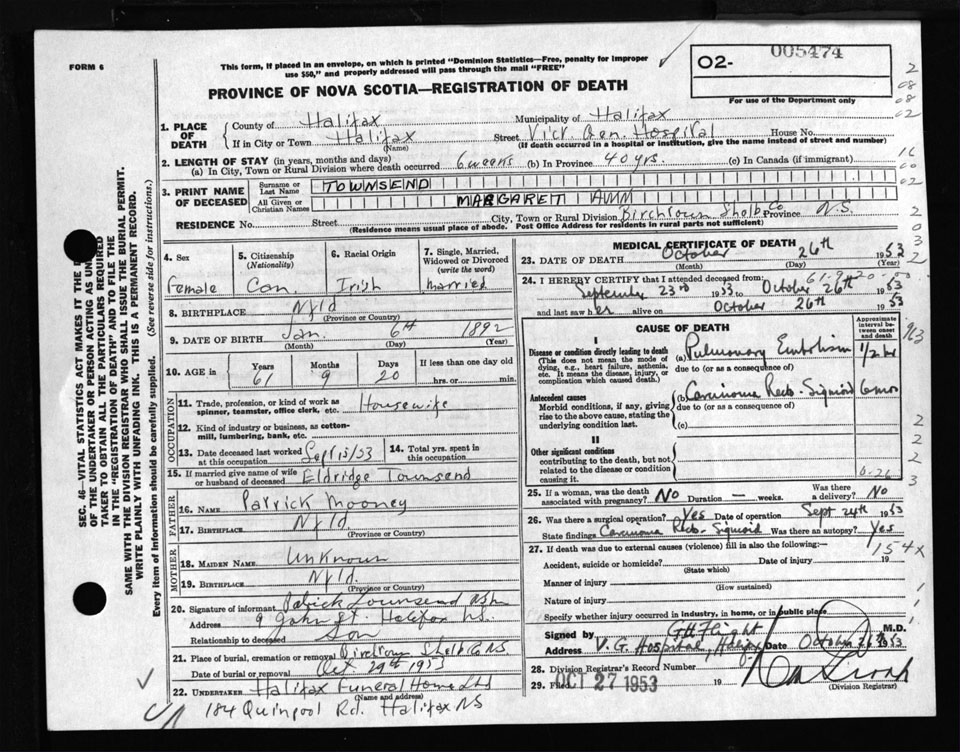 FORM 6
This form, if placed in an envelope, on which is printed "Dominion Statistics—Free, penalty for improper
use $50," and properly addressed will pass through the mail "FREE"
O2- 005474
For use of the Department only
PROVINCE OF NOVA SCOTIA—REGISTRATION OF DEATH
1. PLACE OF DEATH
County of Halifax Municipality of Halifax
If in City or Town Halifax (Name) Street Vict Gen. Hospital House No.
(If death occurred in a hospital or institution, give the name instead of street and number)
2. LENGTH OF STAY (in years, months and days)
(a) In City, Town or Rural Division where death occurred 6 weeks (b) In Province 40 yrs. (c) In Canada (if immigrant)
3. PRINT NAME OF DECEASED
Surname or Last Name TOWNSEND
All Given or Christian Names MARGARETT ANN
RESIDENCE No. Street City, Town or Rural Division Birchtown Shelb. Co Province N.S.
(Residence means usual place of abode. Post Office Address for residents in rural parts not sufficient)
4. Sex Female
5. Citizenship (Nationality) Can.
6. Racial Origin Irish
7. Single, Married, Widowed or Divorced (write the word) Married
8. BIRTHPLACE Nfld (Province or Country)
9. DATE OF BIRTH Jan. 6th 1892
(Month) (Day) (Year)
10. AGE in Years 61 Months 9 Days 20 If less than one day old hrs. or min.
OCCUPATION
11. Trade, profession, or kind of work as spinner, teamster, office clerk, etc. Housewife
12. Kind of industry or business, as cotton-mill, lumbering, bank, etc.
13. Date deceased last worked at this occupation Sept 15/53
14. Total yrs. spent in this occupation
15. If married give name of wife or husband of deceased Eldridge Townsend
FATHER
16. NAME Patrick Mooney
17. BIRTHPLACE Nfld. (Province or Country)
MOTHER
18. MAIDEN NAME Unknown
19. BIRTHPLACE Nfld. (Province or Country)
20. Signature of informant Patrick Townsend
Address 9 John St. Halifax N.S.
Relationship to deceased Son
21. Place of burial, cremation or removal Birchtown Shelb Co NS
Date of burial or removal Oct 29th 1953
22. UNDERTAKER Halifax Funeral Home Ltd
(Name and address)
184 Quinpool Rd. Halifax NS
MEDICAL CERTIFICATE OF DEATH
23. DATE OF DEATH October 26th 1953
(Month) (Day) (Year)
61-9-20
24. I HEREBY CERTIFY that I attended deceased from:
September 23rd 1953 to October 26th 1953
and last saw her alive on October 26th 1953
CAUSE OF DEATH
Approximate interval between onset and death
I
Disease or condition directly leading to death
(This does not mean the mode of dying, e.g., heart failure, asthenia, etc. It means the disease, injury, or complication which caused death.)
(a) Pulmonary Embolism
due to (or as a consequence of)
Antecedent causes
Morbid conditions, if any, giving rise to the above cause, stating the underlying condition last.
(b) Carcinoma Recto-Sigmoid 6 mos
due to (or as a consequence of)
(c)
II
Other significant conditions
contributing to the death, but not related to the disease or condition causing it.
25. If a woman, was the death associated with pregnancy? No Duration — weeks. Was there a delivery? No
26. Was there a surgical operation? Yes Date of operation Sept 24th 1953
State findings Carcinoma Recto-Sigmoid Was there an autopsy? Yes
154x
27. If death was due to external causes (violence) fill in also the following:—
Accident, suicide or homicide? (State which) Date of injury 19
Manner of injury (How sustained)
Nature of injury
Specify whether injury occurred in industry, in home, or in public place
Signed by M.D.
Address V. G. Hospital, Halifax Date October 26th 1953
28. Division Registrar's Record Number
29. Filed OCT 27 1953 19
(Division Registrar)
SEC. 46—VITAL STATISTICS ACT MAKES IT THE
OF THE UNDERTAKER OR PERSON ACTING AS
TAKER TO OBTAIN ALL THE PARTICULARS REQUIRED
IN THE "REGISTRATION OF DEATH" AND TO FILE THE
SAME WITH THE DIVISION REGISTRAR WHO SHALL ISSUE THE BURIAL PERMIT.
WRITE PLAINLY WITH UNFADING INK. THIS IS A PERMANENT RECORD.
Every item of information should be carefully supplied. (See reverse side for instructions.)